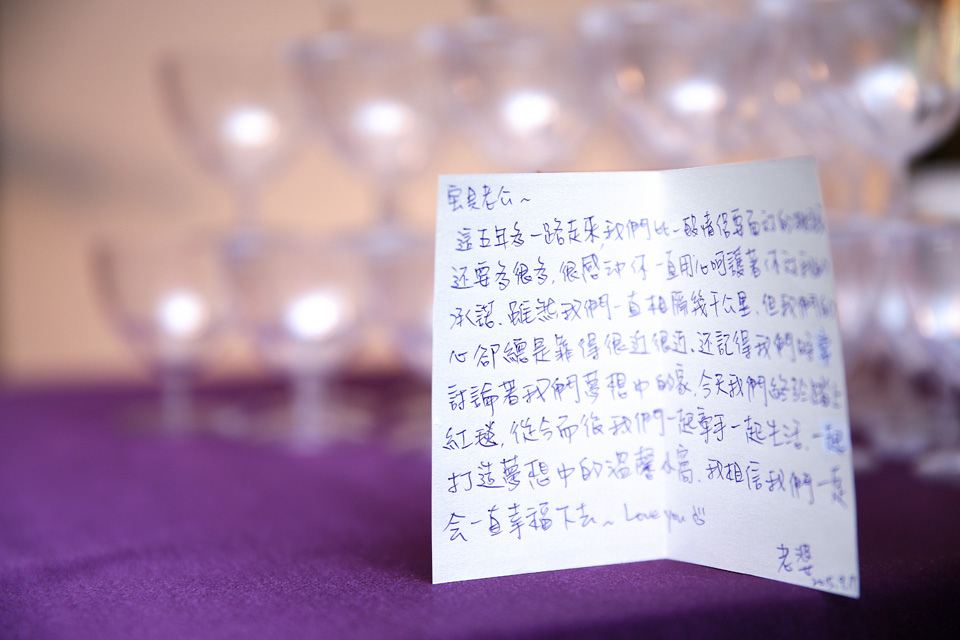 寶貝老公~
這五年多一路走來,我們比一般情侶要面對的
还要多很多,很感动你一直用心呵護著你對我的
承諾.雖然我們一直相隔幾千公里.但我們的
心卻總是靠得很近很近.还記得我們
討論著我們夢想中的家.今天我們終於踏上
紅毯,從今而後我們一起牽手一起生活.一起
打造夢想中的溫馨小窩.我相信我們一定
会一直幸福下去~ Love you
老婆